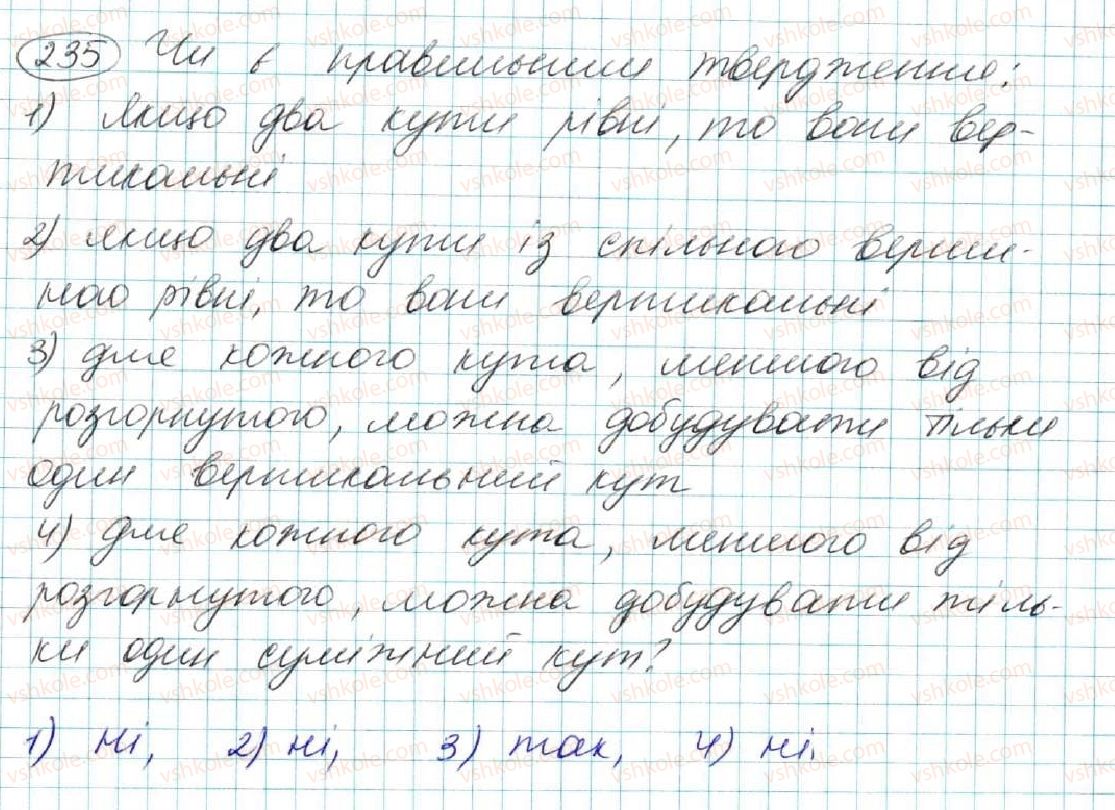 235 Чи є правильним твердження:
1) якщо два кути рівні, то вони вер-
тикальні
2) якщо два кути із спільною верши-
ною рівні, то вони вертикальні
3) для кожного кута, меншого від
розгорнутого, можна добудувати тільки
один вертикальний кут
4) для кожного кута, меншого від
розгорнутого, можна добудувати тіль-
ки один суміжний кут?
1) ні, 2) ні, 3) так, 4) ні.